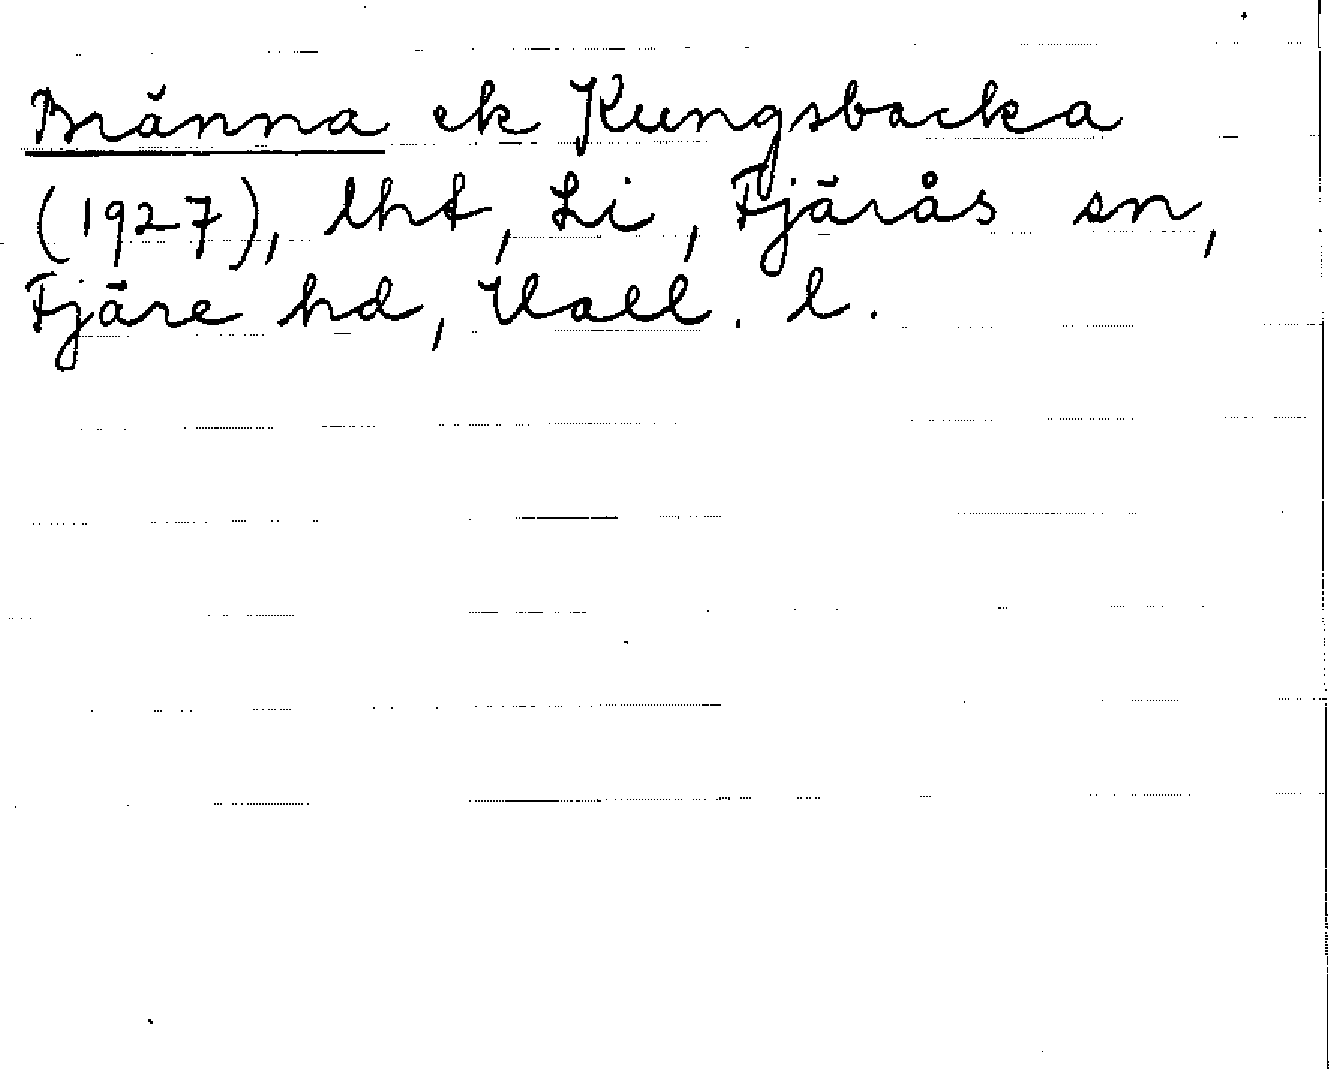 Bränna ek Kungsbacka
(1927), lht, Li, Fjärås sn,
Fjäre hd, Hall. l.